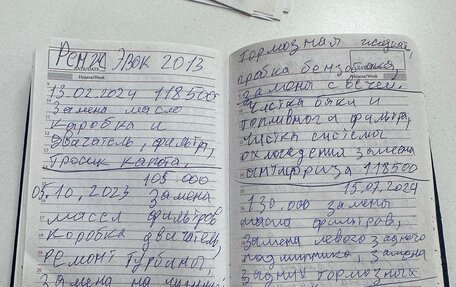 Рендж Эвок 2013
13.02.2024 118.500
Замена масло
каробка и
двигатель, фильтра,
тросик капота,
105.000
05.10.2023 замена
массл фильтров
коробка
ремонт турбины,
Замена на
тормозная
пробка бензобака
замены свечей.
чистка бака и
топливнога фильтра,
чистка системы
охлождения замена
антифриза 118500
15.07.2024
130.000 замены
масла фильтров,
Замена левого заднего
подшипника, замена
задних тормозных